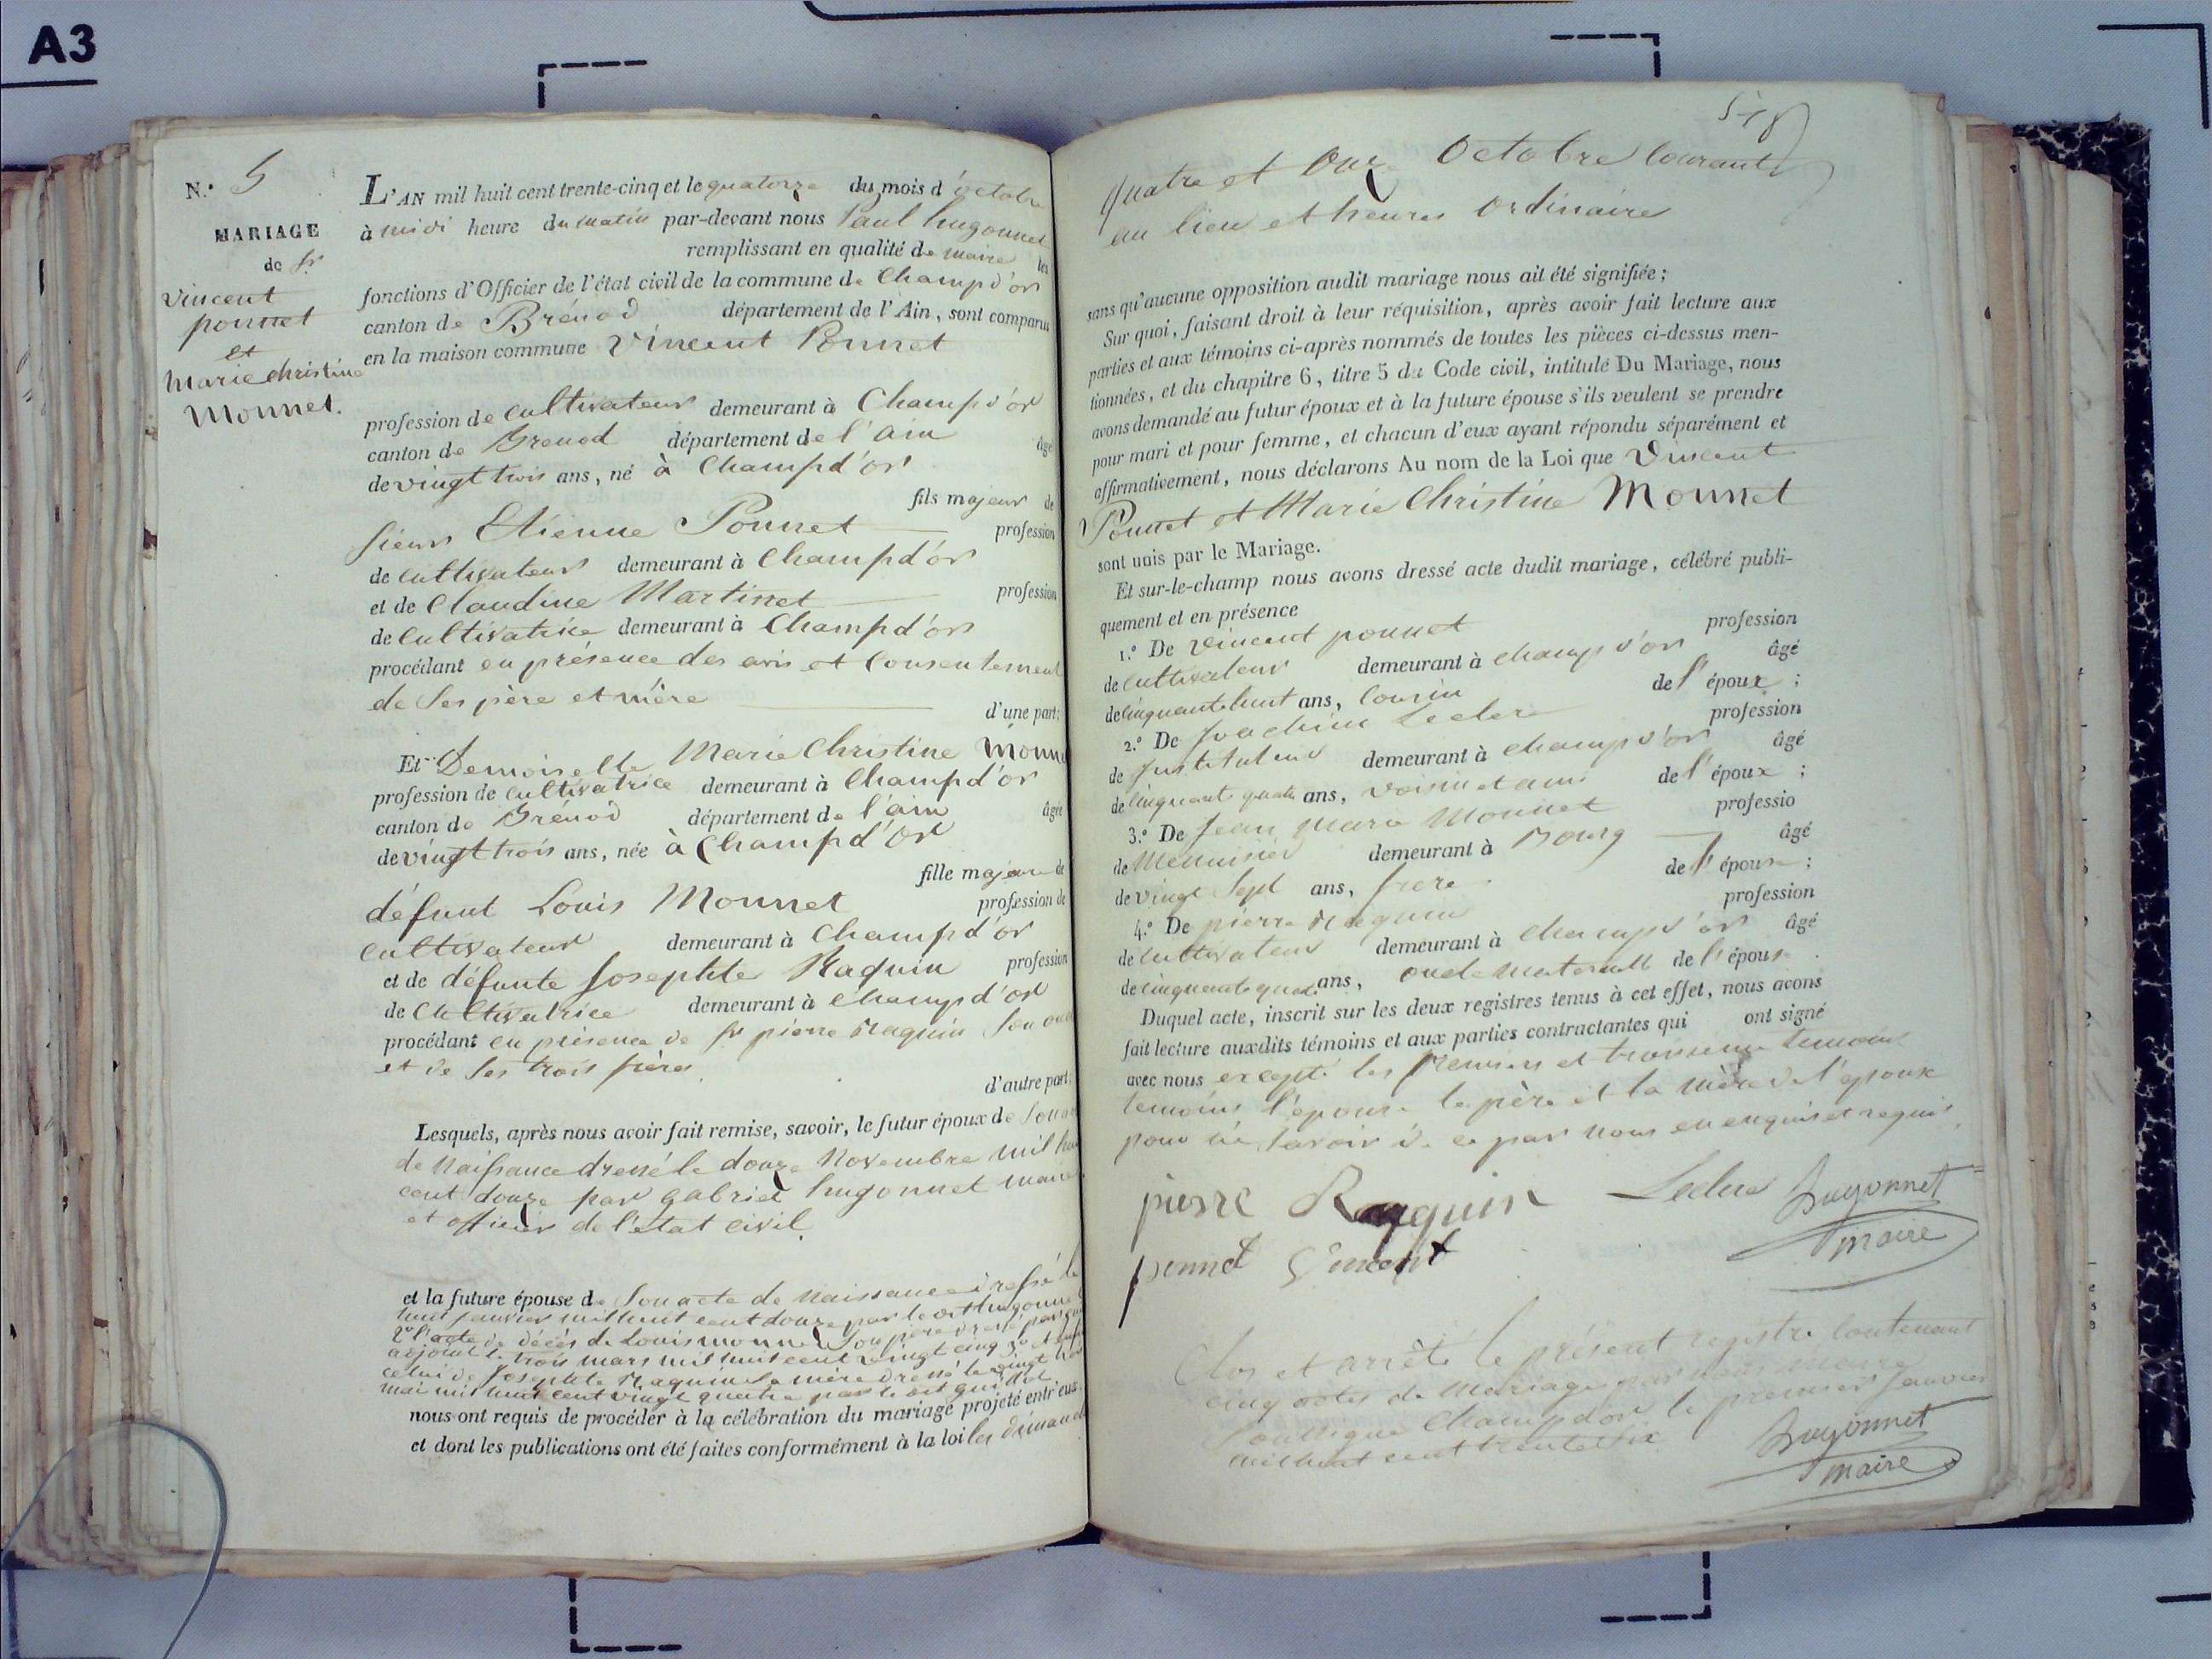 A3
N.° 5
MARIAGE
de Sr
Vincent
ponnet
et
Marie christine
Monnet.
L'AN mil huit cent trente-cinq et le quatorze du mois d'octobre
à midi heure du matin par-devant nous Paul hugonnet
remplissant en qualité de maire les
fonctions d'Officier de l'état civil de la commune de Champd'or
canton de Brénod département de l'Ain, sont comparus
en la maison commune Vincent Ponnet
profession de cultivateur demeurant à Champd'or
canton de Brenod département de l'ain âgé
de vingt trois ans, né à Champd'or
fils majeur de
sieur Etienne Ponnet profession
de cultivateur demeurant à Champd'or
et de Claudine Martinet profession
de cultivatrice demeurant à Champd'or
procédant en présence des avis et consentement
de ses père et mère d'une part;
Et Demoiselle Marie Christine Monnet
profession de cultivatrice demeurant à Champd'or
canton de Brénod département de l'ain âgée
de vingt trois ans, née à Champd'or
fille majeure de
défunt Louis Monnet profession de
cultivateur demeurant à Champd'or
et de défunte Josephte Raquin profession
de cultivatrice demeurant à Champd'or
procédant en présence de Sr pierre Raquin son
et de ses trois frères d'autre part;
Lesquels, après nous avoir fait remise, savoir, le futur époux de son
de Naissance dressé le douze Novembre mil
cent douze par gabriel hugonnet maire
et officier de l'état civil.
et la future épouse de son acte de naissance dressé le
huit janvier mil huit cent douze par le dit hugonnet
2° l'acte de décès de Louis monnet son père dressé par
adjoint le trois mars mil huit cent vingt cinq 3° et
celui de Josephte Raquin sa mère dressé le vingt
mai mil huit cent vingt quatre par le dit
nous ont requis de procéder à la célébration du mariage projeté entr'eux,
et dont les publications ont été faites conformément à la loi les dimanches
518
quatre et onze Octobre Courant
au lieu et heures ordinaire
sans qu'aucune opposition audit mariage nous ait été signifiée;
Sur quoi, faisant droit à leur réquisition, après avoir fait lecture aux
parties et aux témoins ci-après nommés de toutes les pièces ci-dessus men-
tionnées, et du chapitre 6, titre 5 du Code civil, intitulé Du Mariage, nous
avons demandé au futur époux et à la future épouse s'ils veulent se prendre
pour mari et pour femme, et chacun d'eux ayant répondu séparément et
affirmativement, nous déclarons Au nom de la Loi que Vincent
Ponnet et Marie Christine Monnet
sont unis par le Mariage.
Et sur-le-champ nous avons dressé acte dudit mariage, célébré publi-
quement et en présence
1.° De Vincent ponnet profession
de cultivateur demeurant à champd'or âgé
de cinquante huit ans, cousin de l'époux;
2.° De Joachim Leclerc profession
de Instituteur demeurant à champd'or âgé
de cinquante quatre ans, voisin et ami de l'époux;
3.° De Jean Marie Monnet professio
de Menuisier demeurant à Bourg âgé
de vingt sept ans, frère de l'épouse;
4.° De pierre Raquin profession
de cultivateur demeurant à champd'or âgé
de cinquante quatre ans, oncle maternelle de l'épouse.
Duquel acte, inscrit sur les deux registres tenus à cet effet, nous avons
fait lecture auxdits témoins et aux parties contractantes qui ont signé
avec nous excepté les premiers et troisieme temoins
temoins l'épouse le père et la mère de l'époux
pour ne savoir de ce par nous en enquis et requis.
pierre Raquin Leclerc hugonnet
maire
ponnet Vincent
Clos et arrêté le présent registre contenant
cinq actes de Mariage par nous maire
Soussigné Champdor le premier janvier
mil huit cent trente six
hugonnet
maire